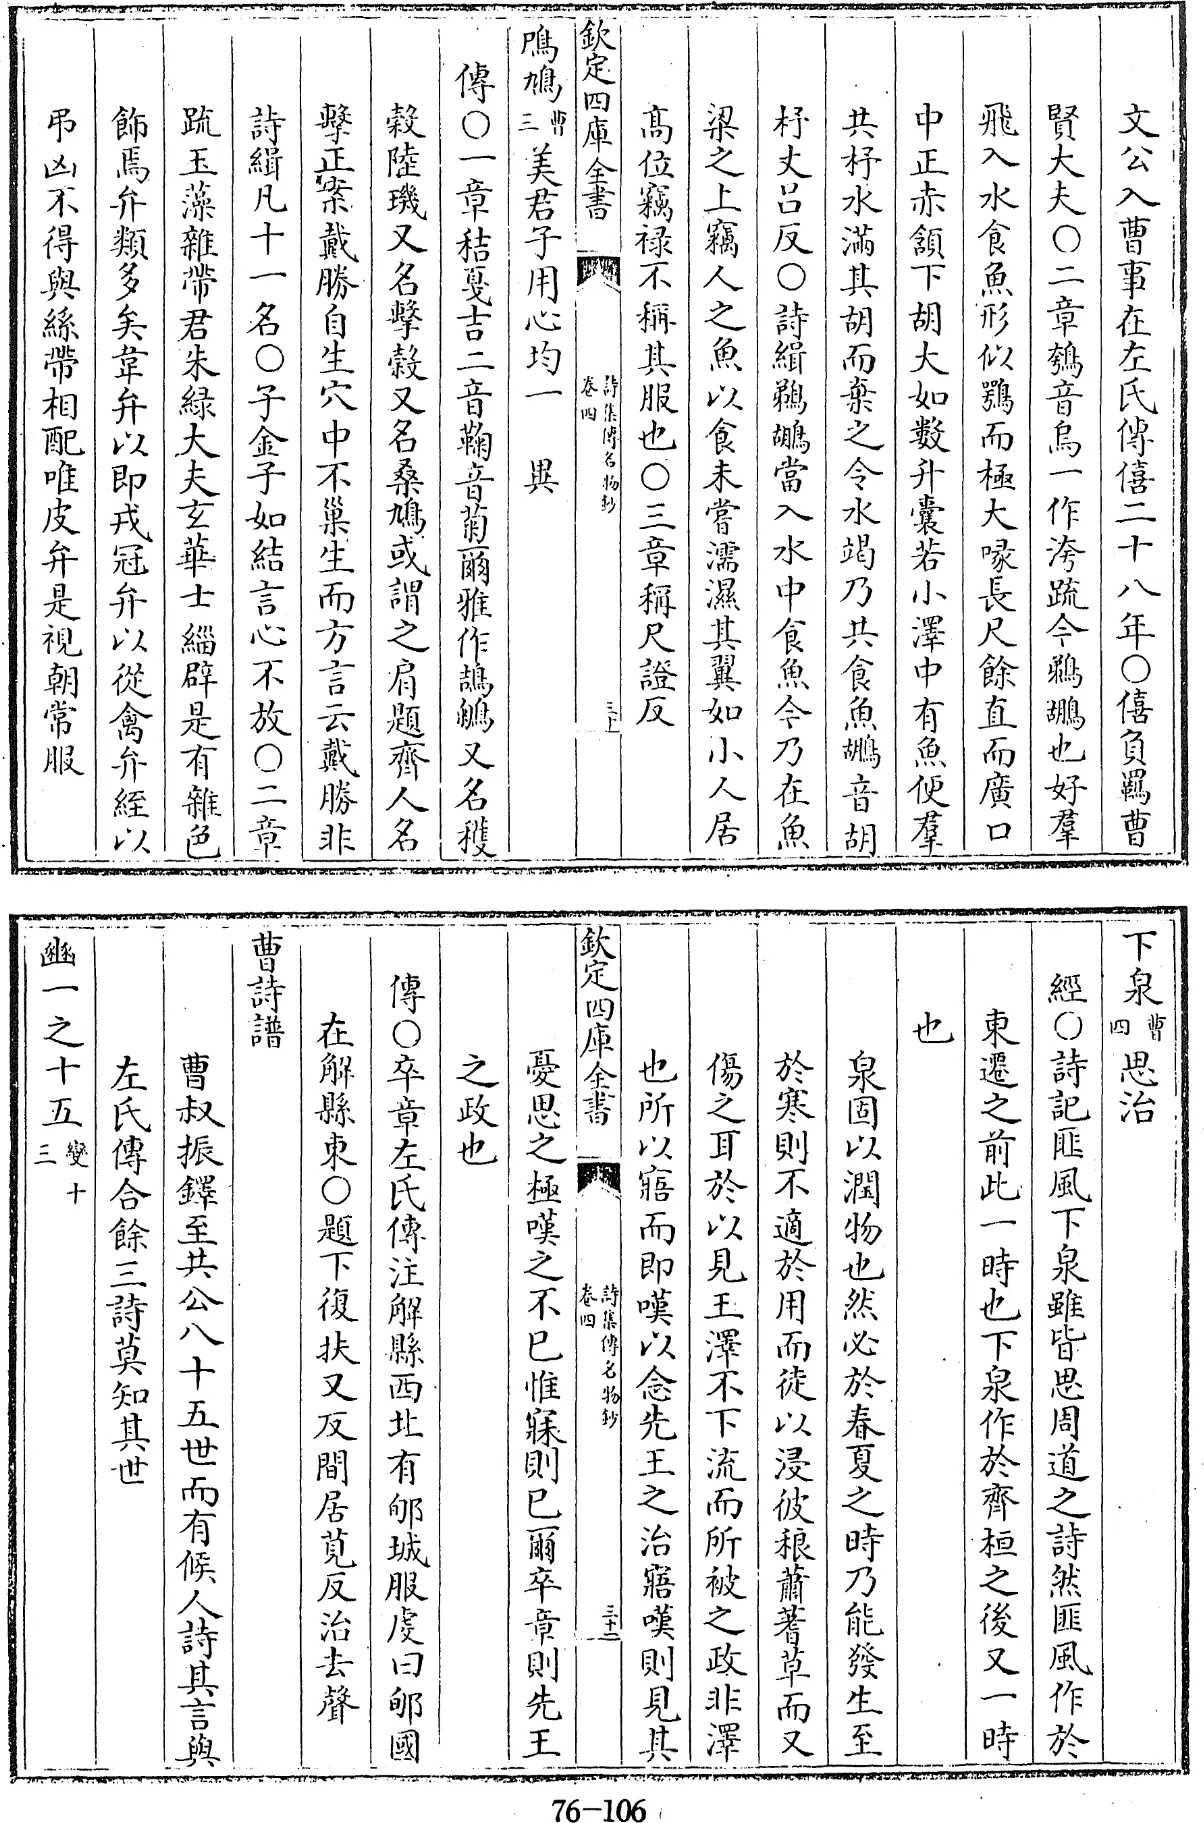 文公入曹事在左氏傳僖二十八年○僖負羈曹
賢大夫○二章鵚音烏一作洿疏今鵜鶘也好羣
飛入水食魚形似鶚而極大喙長尺餘直而廣口
中正赤頷下胡大如數升囊若小澤中有魚便羣
共杼水滿其胡而棄之令水竭乃共食魚鶘音胡
杼丈吕反○詩緝鵜鶘當入水中食魚今乃在魚
梁之上竊人之魚以食未嘗濡濕其翼如小人居
髙位竊禄不稱其服也○三章稱尺證反
欽定四庫全書
詩集傳名物鈔
卷四
三十一
鳲鳩曹三美君子用心均一 興
傳○一章秸戛吉二音鞠音菊爾雅作鴶鵴又名穫
糓陸璣又名擊糓又名桑鳩或謂之肩題齊人名
擊正案戴勝自生穴中不巢生而方言云戴勝非
詩緝凡十一名○子金子如結言心不放○二章
疏玉藻雜帶君朱緑大夫玄華士緇辟是有雜色
飾焉弁類多矣韋弁以即戎冠弁以從禽弁絰以
弔凶不得與絲帶相配唯皮弁是視朝常服
下泉曹四思治
經○詩記匪風下泉雖皆思周道之詩然匪風作於
東遷之前此一時也下泉作於齊桓之後又一時
也
泉固以潤物也然必於春夏之時乃能發生至
於寒則不適於用而徒以浸彼稂蕭蓍草而又
傷之耳於以見王澤不下流而所被之政非澤
也所以寤而即嘆以念先王之治寤嘆則見其
欽定四庫全書
詩集傳名物鈔
卷四
三十二
憂思之極嘆之不已惟寐則已爾卒章則先王
之政也
傳○卒章左氏傳注解縣西北有郇城服虔曰郇國
在解縣東○題下復扶又反間居莧反治去聲
曹詩譜
曹叔振鐸至共公八十五世而有候人詩其言與
左氏傳合餘三詩莫知其世
豳一之十五變十三
76-106